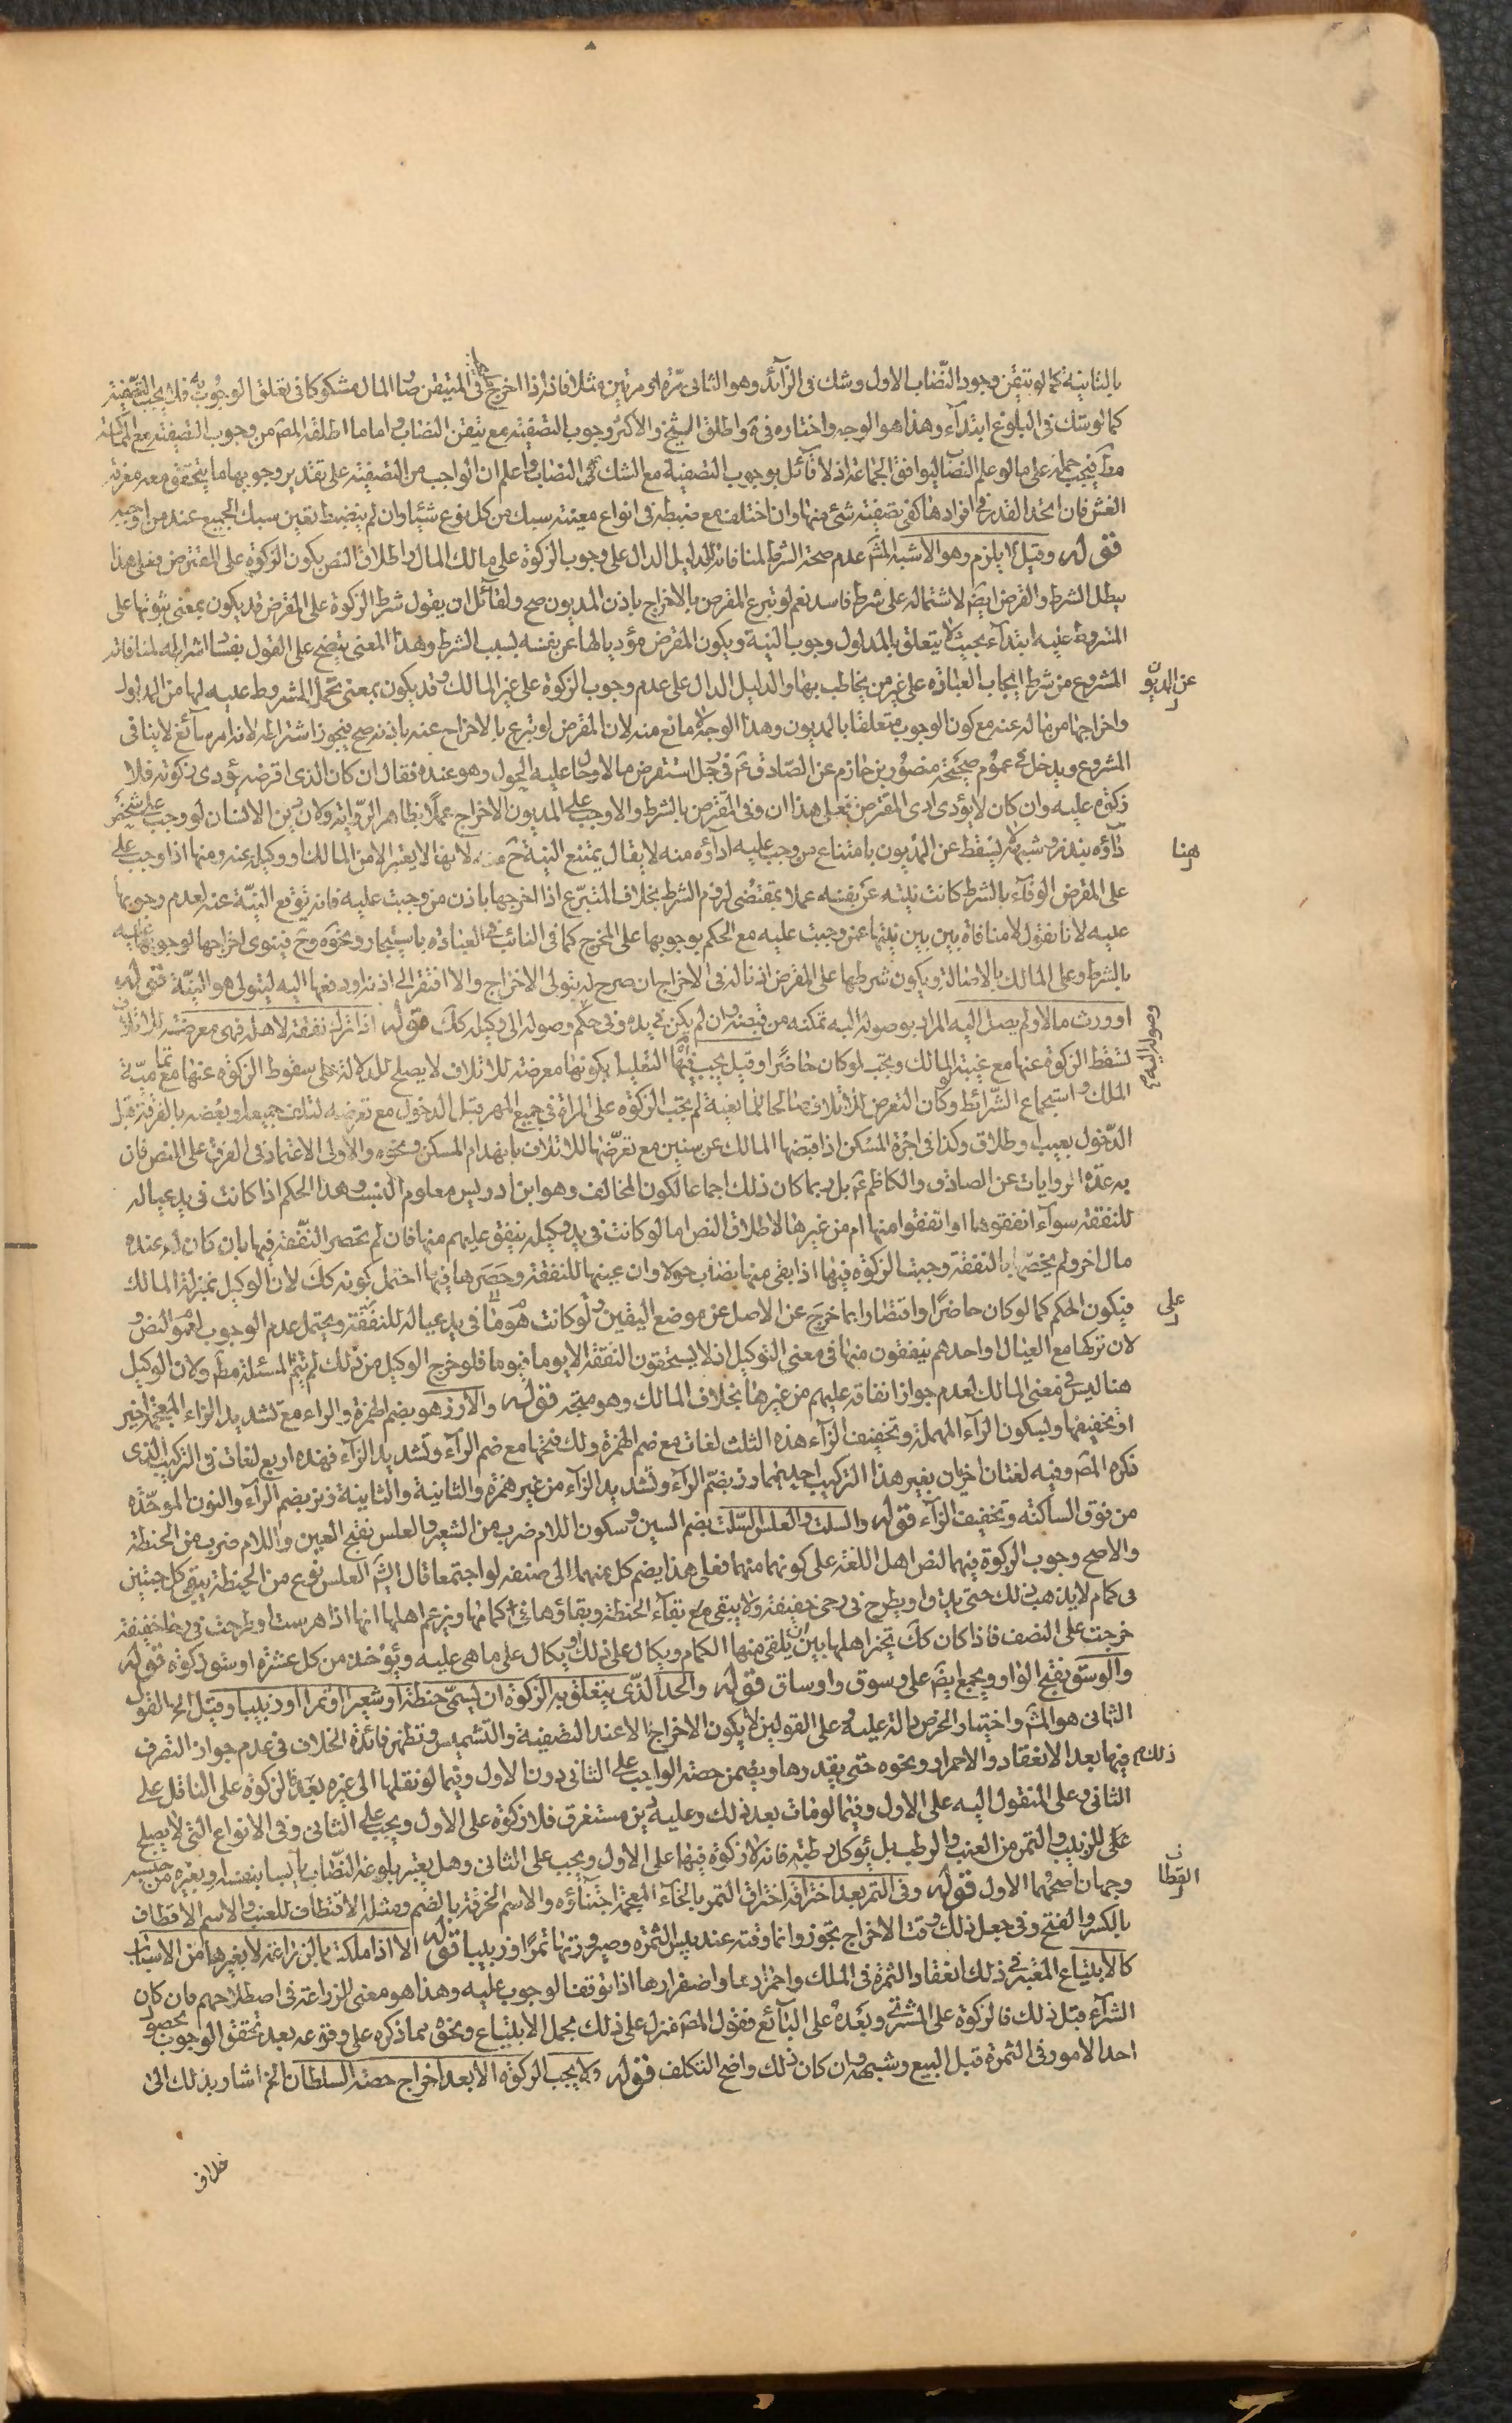 بالثانية كما لو تيقن وجود النصاب الاول وشك في الزائد وهو الثاني مرة او مرتين مثلا فانه اذا اخرج في المتيقن صار المال مشكوكا في تعلق الوجوب به فلا يجب التصفية
كما لو شك في البلوغ ابتدآء وهذا هو الوجه واختاره في واطلق الشيخ والاكثر وجوب التصفية مع تيقن النصاب واما ما اطلقه المص من وجوب التصفية مع المماكسة
فيجب حمله على ما لو علم النصاب ليوافق الجماعة اذ لا قآئل بوجوب التصفية مع الشك في النصاب واعلم ان الواجب من التصفية على تقدير وجوبها ما يتحقق معه معرفة
الغش فان اتحد القدر في افرادها كفى تصفية شئ منها وان اختلف مع ضبطه في انواع معينة سبك من كل نوع شيئا وان لم ينضبط تعين سبك الجميع عند من اوجبه
قوله وقيل يلزم وهو الاشبه المش عدم صحة الشرط لمنافاته للدليل الدال على وجوب الزكوة على مالك المال واطلاق النص بكون الزكوة على المقترض فعلى هذا
يبطل الشرط والقرض ايض لاشتماله على شرط فاسد نعم لو تبرع المقرض بالاخراج باذن المديون صح ولقآئل ان يقول شرط الزكوة على المقرض قد يكون بمعنى ثبوتها على
المشروط عليه ابتدآء بحيث لا يتعلق بالمديون وجوب البتة ويكون المقرض مؤديا لها عن نفسه بسبب الشرط وهذا المعنى يتضح على القول بفساد اشتراطه لمنافاته
المشروع من شرط ايجاب العبادة على غير من يخاطب بها والدليل الدال على عدم وجوب الزكوة على غير المالك وقد يكون بمعنى تحمل المشروط عليه لها عن المديون
عن المديون
واخراجها من ماله عنه مع كون الوجوب متعلقا بالمديون وهذا الوجه لا مانع منه لان المقرض لو تبرع بالاخراج عنه باذنه صح فيجوز اشتراطه لانه امر سآئغ لا ينافي
المشروع ويدخل في عموم صحيحة منصور بن حازم عن الصادق ع في رجل استقرض مالا وحال عليه الحول وهو عنده فقال ان كان الذى اقرضه يؤدى زكوته فلا
زكوة عليه وان كان لا يؤدى ادى المقترض فعلى هذا ان وفى المقرض بالشرط والا وجب على المديون الاخراج عملا بظاهر الرواية ولان دين الانسان لو وجب على شخص
ادآؤه بنذر وشبهه لا يسقط عن المديون بامتناع من وجب عليه ادآؤه منه لا يقال يمتنع النية ح منه لانها لا يعتبر الا من المالك او وكيله عنه ومنها اذا وجب على
هنا
على المقرض الوفآء بالشرط كانت نيته عن نفسه عملا بمقتضى لزوم الشرط بخلاف المتبرع اذا اخرجها باذن من وجبت عليه فانه يوقع النية عنه لعدم وجوبها
عليه لانا نقول لا منافاة بين نيتها عمن وجبت عليه مع الحكم بوجوبها على المخرج كما في النائب في العبادة باستيجار ونحوه وح فينوى اخراجها لوجوبها عليه
بالشرط وعلى المالك بالاصالة ويكون شرطها على المقرض اذنا له في الاخراج ان صرح له بتولى الاخراج والا افتقر الى اذنه او دفعها اليه ليتولى هو النية قوله
او ورث مالا ولم يصل اليه المراد بوصوله اليه تمكنه من قبضه وان لم يكن في يده وفي حكم وصوله الى وكيله كك قوله اذا ترك نفقة لاهله فهى معرضة للاتلاف
وصوله اليه
تسقط الزكوة عنها مع غيبة المالك وتجب لو كان حاضرا وقيل يجب فيهما التعليل بكونها معرضة للاتلاف لا يصلح للدلالة على سقوط الزكوة عنها مع تمامية
الملك واستجماع الشرائط وكان التعرض للاتلاف مانعية لم تجب الزكوة على المراة في جميع المهر قبل الدخول مع تعرضه لتلف جميعه او بعضه بالفرقة قبل
الدخول بعيب او طلاق وكذا في اجرة المسكن اذا قبضها المالك عن سنين مع تعرضها للاتلاف بانهدام المسكن ونحوه والاولى الاعتماد في الفرق على النص فان
به عدة الروايات عن الصادق والكاظم ع بل ربما كان ذلك اجماعا لكون المخالف وهو ابن ادريس معلوم النسب وهذا الحكم اذا كانت في يد عياله
للنفقة سوآء انفقوها او انفقوا منها ام من غيرها لاطلاق النص اما لو كانت في يد وكيله ينفق عليهم منها فان لم تحصر النفقة فيها بان كان له عنده
مال اخر ولم يخصها بالنفقة وجبت الزكوة فيها اذا بقى منها نصاب حولا وان عينها للنفقة وحصرها فيها احتمل كونه كك لان الوكيل بمنزلة المالك
فيكون الحكم كما لو كان حاضرا واقتصارا بما خرج عن الاصل عن موضع اليقين وهو ما لو كانت في يد عياله للنفقة ويحتمل عدم الوجوب لعموم النص
على
لان تركها مع العيال او احدهم ينفقون منها في معنى التوكيل اذ لا يستحقون النفقة الا يوما فيوما فلو خرج الوكيل من ذلك لم يتم المسئلة مط ولان الوكيل
هنا ليس في معنى المالك لعدم جواز انفاقه عليهم من غيرها بخلاف المالك وهو متجه قوله والارز هو بضم الهمزة والراء مع تشديد الزاء المعجمة اخيرا
او تخفيفها وبسكون الرآء المهملة وتخفيف الزآء هذه الثلث لغات مع ضم الهمزة ولك فتحها مع ضم الرآء وتشديد الزآء فهذه اربع لغات في التركيب الذى
ذكره المص وفيه لغتان اخريان بغير هذا التركيب احديهما رز بضم الرآء وتشديد الزآء من غير همزة والثانية رنز بضم الرآء والنون الموحدة
من فوق الساكنة وتخفيف الزآء قوله والسلت والعلس السلت بضم السين وسكون اللام ضرب من الشعير والعلس بفتح العين واللام ضرب من الحنطة
والاصح وجوب الزكوة فيهما لنص اهل اللغة على كونهما منهما فعلى هذا يضم كل منهما الى صنفه لو اجتمعا قال الش العلس نوع من الحنطة يبقى كل حبتين
في كمام لا يذهب ذلك حتى يدق او يطرح في رحى خفيفة ولا يبقى مع بقآء الحنطة وبقاؤها في كمامها ويزعم اهلها انها اذا هرست او طرحت في رحا خفيفة
خرجت على النصف فاذا كان كك تخير اهلها بين ان يلقى منها الكمام ويكال على ذلك او يكال على ما هى عليه ويؤخذ من كل عشرة اوسق زكوة قوله
والوسق بفتح الواو ويجمع ايض على وسوق واوساق قوله والحد الذى يتعلق به الزكوة ان يسمى حنطة او شعيرا او تمرا او زبيبا وقيل الخ القول
الثانى هو المش واختيار الخرص دالة عليه وعلى القولين لا يكون الاخراج الا عند التصفية والتشميس وتظهر فائدة الخلاف في عدم جواز التصرف
فيها بعد الانعقاد والاحمرار ونحوه حتى يقدرها ويضمن حصة الواجب على الثانى دون الاول وفيما لو نقلها الى غيره بعد ذلك الزكوة على الناقل على
ذلك
الثانى وعلى المنقول اليه على الاول وفيما لو مات بعد ذلك وعليه دين مستغرق فلا زكوة على الاول ويجب على الثانى وفي الانواع التى لا يصلح
للزبيب والتمر من العنب والرطب بل يؤكل رطبة فانه لا زكوة فيها على الاول ويجب على الثانى وهل يعتبر بلوغه النصاب يابسا بنفسه او بغيره من جنسه
وجهان اصحهما الاول قوله وفى التمر بعد اخترافه اختراف التمر بالخآء المعجمة اجتنآؤه والاسم الخرفة بالضم ومثله الاقتطاف للعنب والاسم القطاف
القطاف
بالكسر والفتح وفى جعل ذلك وقت الاخراج تجوز وانما وقته عند يبس الثمرة وصيرورتها تمرا او زبيبا قوله الا اذا ملكت بالزراعة لا بغيرها من الاسباب
كالابتياع المعتبر في ذلك انعقاد الثمرة في الملك واحمرارها واصفرارها اذا توقف الوجوب عليه وهذا هو معنى الزراعة في اصطلاحهم فان كان
الشرآء قبل ذلك فالزكوة على المشترى وبعده على البآئع فقول المص منزل على ذلك بحمل الابتياع ونحوه مما ذكره على وقوعه بعد تحقق الوجوب بحصول
احد الامور فى الثمرة قبل البيع وشبهه وان كان ذلك واضح التكلف قوله ولا يجب الزكوة الا بعد اخراج حصة السلطان الخ اشار بذلك الى
خلاف